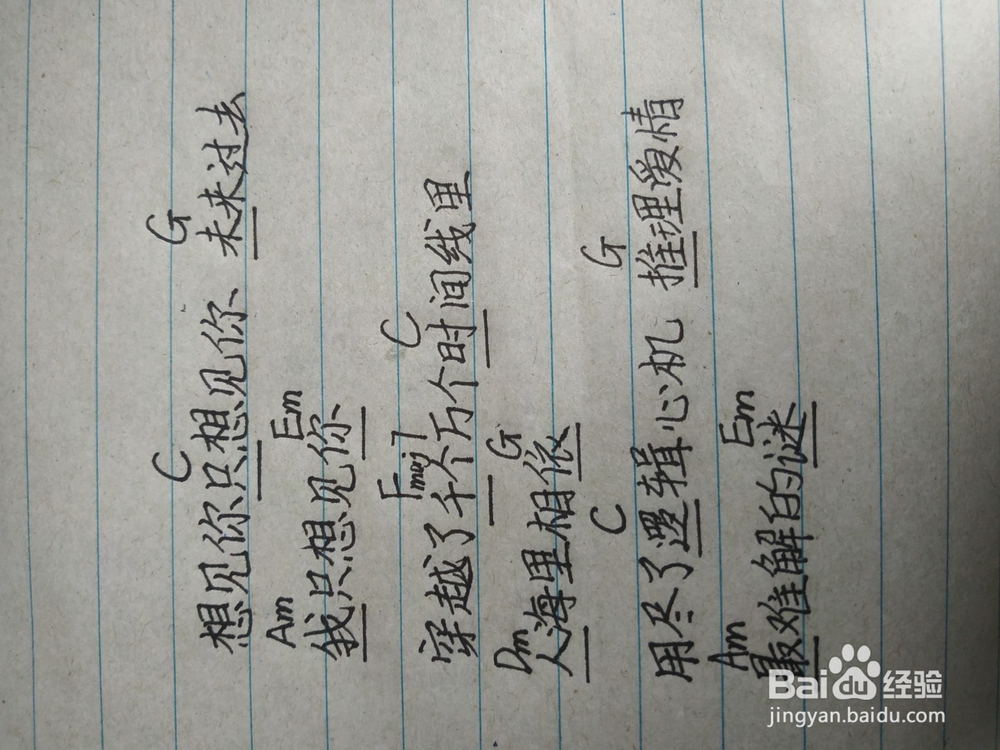 C G
想见你只想见你、未来过去
Am Em
我只想见你
Fmaj7 C
穿越了千个万个时间线里
Dm G
人海里相依
C G
用尽了逻辑心机 推理爱情
Am Em
最难解的谜
Baidu 经验
jingyan.baidu.com